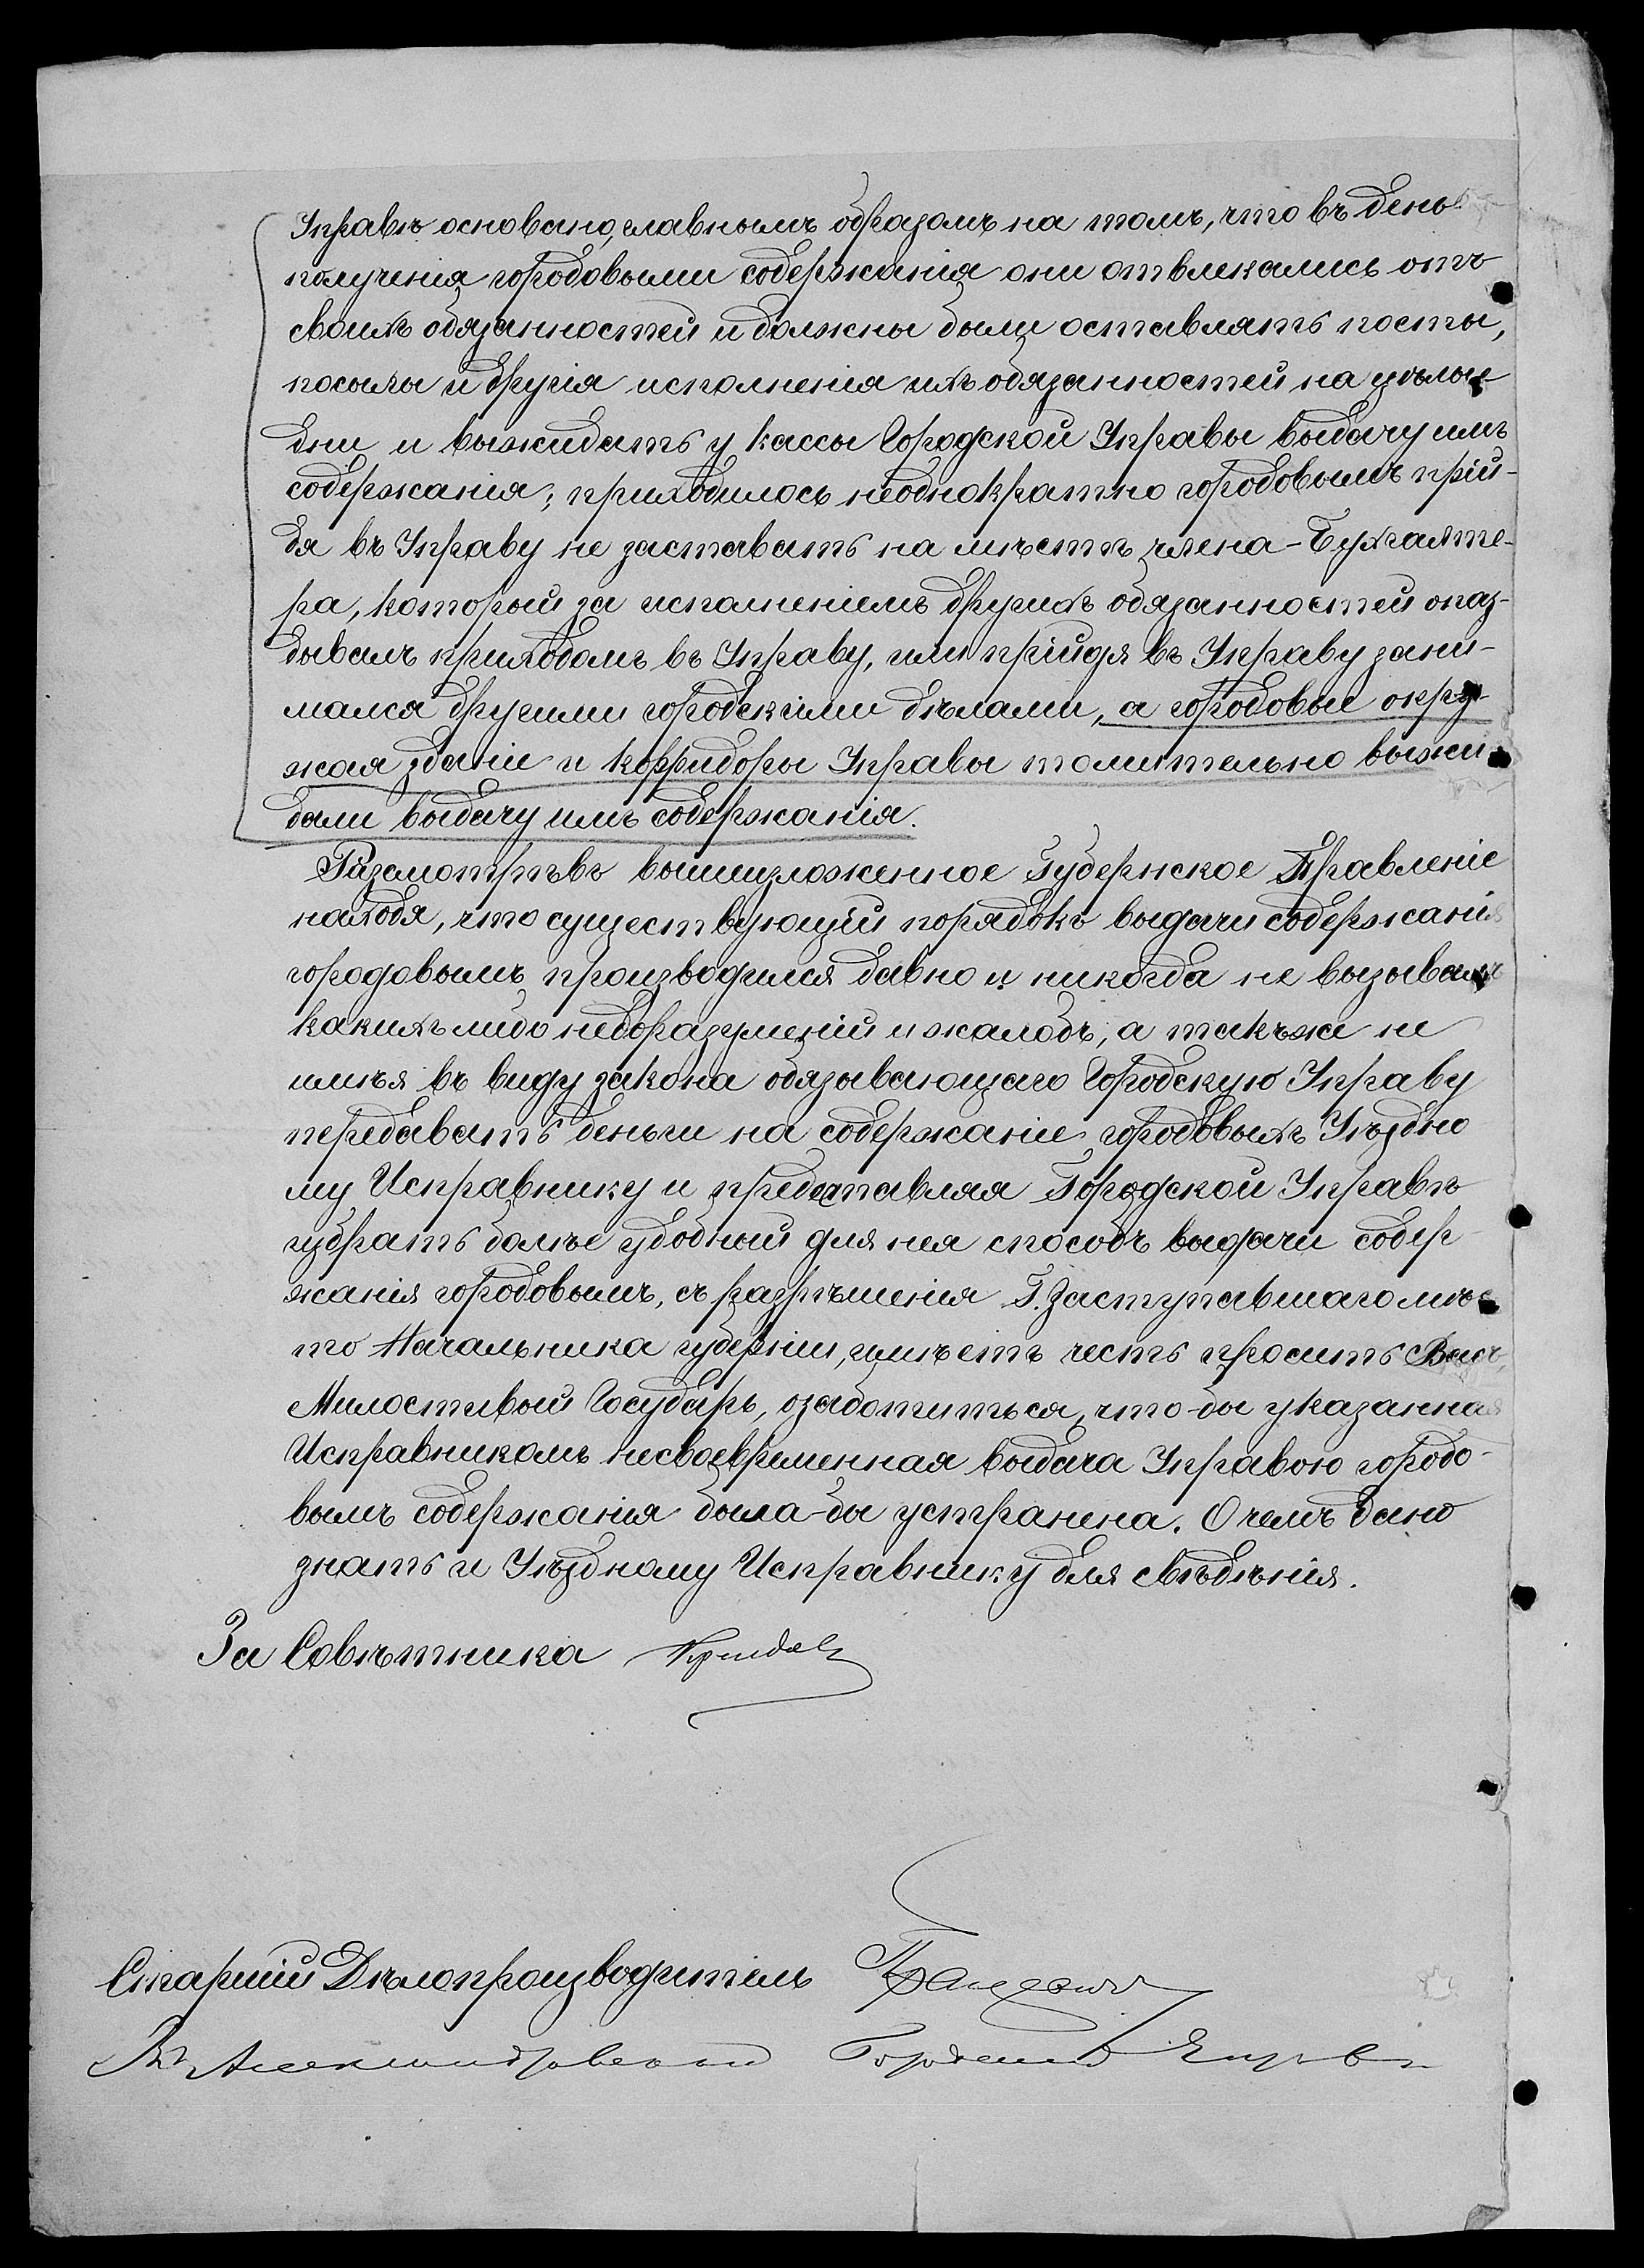 Управѣ основано, главнымъ образомъ на томъ, что въ день
полученія городовыми содержанія они отвлекались отъ
своихъ обязанностей и должны были оставлять посты,
посылы и другія исполненія ихъ обязанностей на цѣлые
дни и выжидать у кассы Городской Управы выдачу имъ
содержанія; приходилось неоднократно городовымъ прій-
дя въ Управу не заставать на мѣстѣ члена-Бухгалте-
ра, который за исполненіемъ другихъ обязанностей опаз-
дывалъ приходомъ въ Управу, или прійдя въ Управу зани-
мался другими городскими дѣлами, а городовые окру-
жая зданіе и коффидоры Управы томительно выжи-
дали выдачу имъ содержанія.
Разсмотрѣвъ вышеизложенное Губернское Правленіе
находя, что существующій порядокъ выдачи содержанія
городовымъ производился давно и никогда не вызывалъ
какихъ либо недоразуменій и жалобъ, а такъже не
имѣя въ виду закона обязывающаго Городскую Управу
передавать деньги на содержаніе городовыхъ Уѣздно
му Исправнику и предоставляя Городской Управѣ
избрать болѣе удобный для нея способъ выдачи содер
жанія городовымъ, съ разрѣшенія Г. Заступавшаго мѣс
то Начальника губерніи, имѣетъ честь просить Васъ,
Милостивый Государь, озаботиться, что-бы указанная
Исправникомъ несвоевременная выдача Управою городо-
вымъ содержанія была-бы устранена. О чемъ дано
знать и Уѣздному Исправнику для свѣдѣнія.
За Совѣтника
Старшій Дѣлопроизводитель
Въ Александровской Городской Управѣ